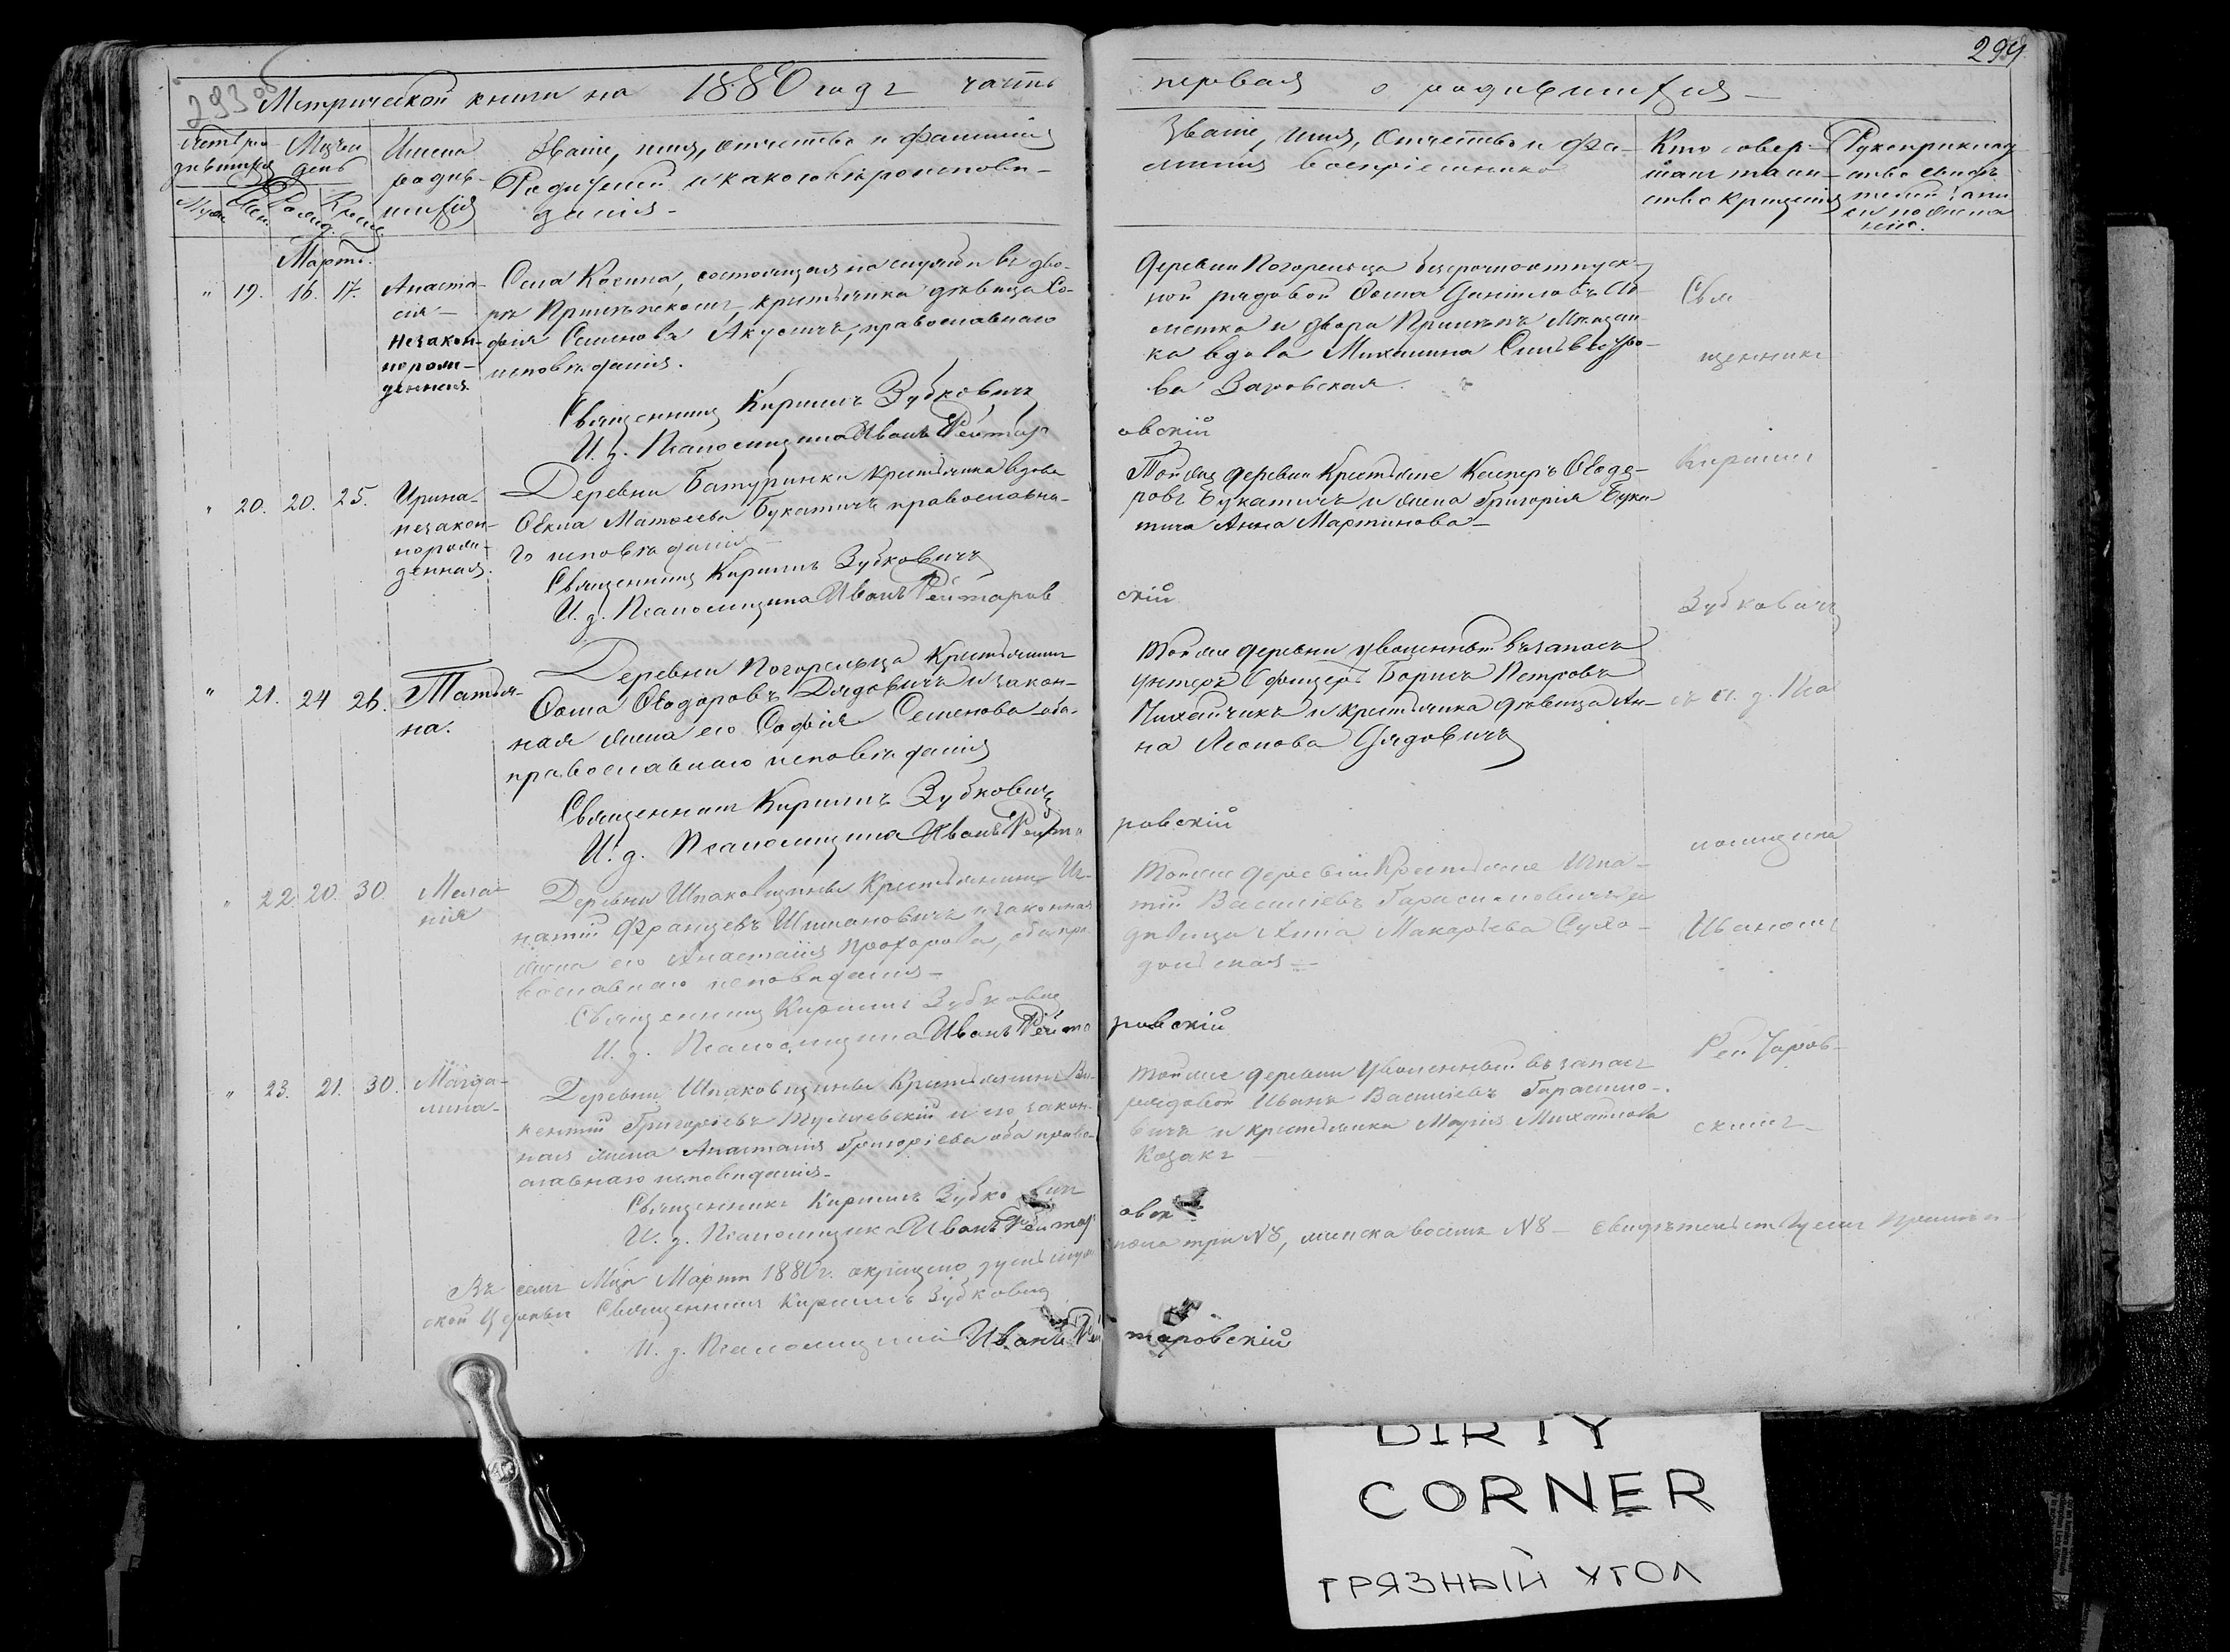 293 об
294
Метрической книги на 1880 годъ часть
первая о родившихся
Счетъ родившихся
Муж. Жен.
Мѣсяцъ день
Рожд. Крещ.
Имена родив-
шихся
Званіе, имя, отчество и фамилія
Родителей и какого вѣроисповѣ-
данія
Званіе, имя, отчество и фа-
милія воспріемниковъ
Кто совер-
шалъ таин-
ство крещенія
Рукоприклад
ство свидѣ-
телей
Мартъ.
" 19. 16. 17.
Анаста-
сія
незакон-
норож-
денная
Села Косина, состоящая на службѣ въ дво-
рѣ, крестьянка дѣвица Со-
фія Семенова Акуличъ, православнаго
исповѣданія.
Священникъ Кириллъ Зубковичъ
И. д. Псаломщика Иванъ Рейтар
овскій
Деревни Погорельца безсрочноотпуск-
ной рядовой Ѳома Даниловъ
вдова
ва
" 20. 20. 25.
Ирина
незакон-
норож-
денная.
Деревни Батуринки крестьянка вдова
Ѳекла Матѳеева Букатичъ православна-
го исповѣданія
Священникъ Кириллъ Зубковичъ
И. д. Псаломщика Иванъ Рейтаров
скій
Той же деревни Крестьяне Ѳеодо-
ровъ Букатичъ и жена Григорія Бука-
тича Анна Мартинова
" 21. 24 26.
Татья-
на.
Деревни Погорельца Крестьянинъ
Ѳома Ѳеодоровъ Дядовичъ и закон-
ная жена его Софія Семенова оба
православнаго исповѣданія
Священникъ Кириллъ Зубковичъ
И. д. Псаломщика Иванъ Рейта
ровскій
Той же деревни уволенный въ запасъ
унтеръ офицеръ Борисъ Петровъ
и крестьянка дѣвица Ан-
на Леонова Дядовичъ
" 22. 20. 30.
Мела-
нія
Деревни Шпаковщины Крестьянинъ Иг-
натій Францевъ Шимановичъ и законная
жена его Анастасія Прохорова, оба пра-
вославнаго исповѣданія
Священникъ Кириллъ Зубкович
И. д. Псаломщика Иванъ Рейта
ровскій
Той же деревни Крестьяне Игна-
тій Василіевъ Гарасимовичъ и
дѣвица Анна Макарьева Сухо-
дольская
" 23. 21. 30.
Магда-
лина
Деревни Шпаковщины Крестьянинъ Ви-
кентій Григоріевъ и его закон-
ная жена Анастасія Григоріева оба право-
славнаго исповѣданія
Священникъ Кириллъ Зубкович
И. д. Псаломщика Иванъ Рейтар
овск
Той же деревни Уволенный въ запасъ
рядовой Иванъ Василіевъ Гарасимо-
вичъ и крестьянка Марія Михайлова
Козакъ
Свя
щенникъ
Кириллъ
Зубковичъ
съ и. д. Пса
ломщика
Иваномъ
Рейтаров-
скимъ
Въ семъ Мцѣ Мартѣ 1880 г. окрещено душъ мужес
каго пола три №3, женска восемь №8 свидѣтельствуемъ
ской Церкви Священникъ Кириллъ Зубкович
И. д. Псаломщика Иванъ Рей
таровскій
DIRTY
CORNER
ГРЯЗНЫЙ УГОЛ